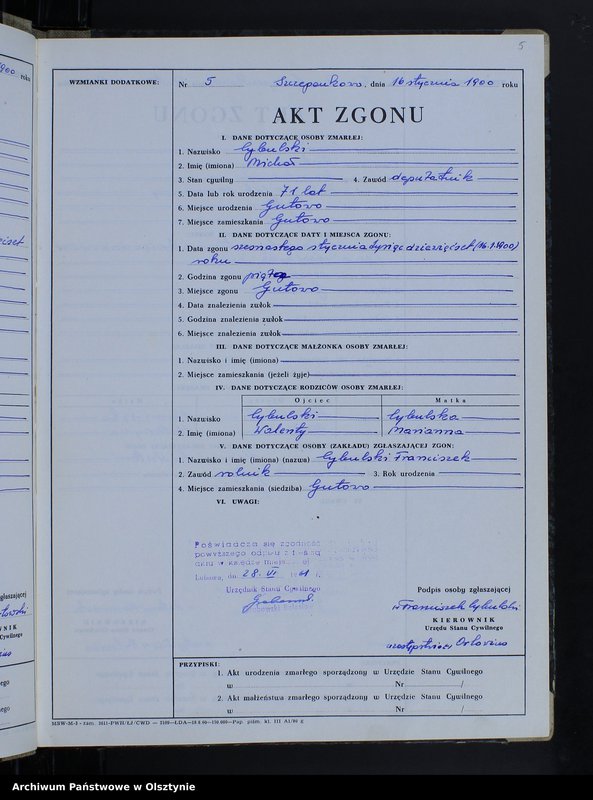 5
WZMIANKI DODATKOWE:
Nr 5 Szczepankowo, dnia 16 stycznia 1900 roku
AKT ZGONU
I. DANE DOTYCZĄCE OSOBY ZMARŁEJ:
1. Nazwisko Cybulski
2. Imię (imiona) Michał
3. Stan cywilny 4. Zawód deputatnik
5. Data lub rok urodzenia 71 lat
6. Miejsce urodzenia Gutowo
7. Miejsce zamieszkania Gutowo
II. DANE DOTYCZĄCE DATY I MIEJSCA ZGONU:
1. Data zgonu szesnastego stycznia tysiąc dziewięćset (16.1.1900)
roku
2. Godzina zgonu piąta
3. Miejsce zgonu Gutowo
4. Data znalezienia zwłok
5. Godzina znalezienia zwłok
6. Miejsce znalezienia zwłok
III. DANE DOTYCZĄCE MAŁŻONKA OSOBY ZMARŁEJ:
1. Nazwisko i imię (imiona)
2. Miejsce zamieszkania (jeżeli żyje)
IV. DANE DOTYCZĄCE RODZICÓW OSOBY ZMARŁEJ:
Ojciec Matka
1. Nazwisko Cybulski Cybulska
2. Imię (imiona) Walenty Marianna
V. DANE DOTYCZĄCE OSOBY (ZAKŁADU) ZGŁASZAJĄCEJ ZGON:
1. Nazwisko i imię (imiona) (nazwa) Cybulski Franciszek
2. Zawód rolnik 3. Rok urodzenia
4. Miejsce zamieszkania (siedziba) Gutowo
VI. UWAGI:
Poświadcza się zgodność
powyższego odpisu z treścią
aktu w księdze
Lubawa, dn. 28. VI 1961 r.
Urzędnik Stanu Cywilnego
Podpis osoby zgłaszającej
Franciszek Cybulski
KIEROWNIK
Urzędu Stanu Cywilnego
w zastępstwie Orlovius
PRZYPISKI:
1. Akt urodzenia zmarłego sporządzony w Urzędzie Stanu Cywilnego
w Nr /
2. Akt małżeństwa zmarłego sporządzony w Urzędzie Stanu Cywilnego
w Nr /
Archiwum Państwowe w Olsztynie